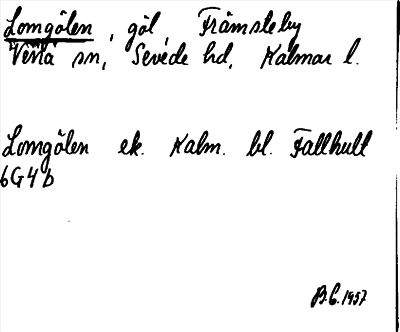 Lomgölen, göl, Främsteby
Vena sn, Sevede hd, Kalmar l.
Lomgölen ek. Kalm. bl. Fallhult
6G4b
B.C. 1957